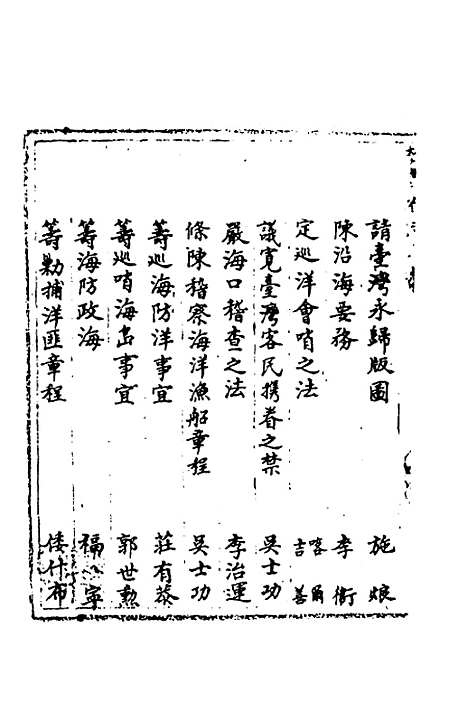 請臺灣永歸版圖 施烺
陳沿海要務 李衛
定巡洋會哨之法 喀爾吉善
議寬臺灣客民携眷之禁 吳士功
嚴海口稽查之法 李治運
條陳稽察海洋漁船章程 吳士功
籌巡海防洋事宜 莊有恭
籌巡哨海島事宜 郭世勳
籌海防政海 福寧
籌勦捕洋匪章程 倭什布